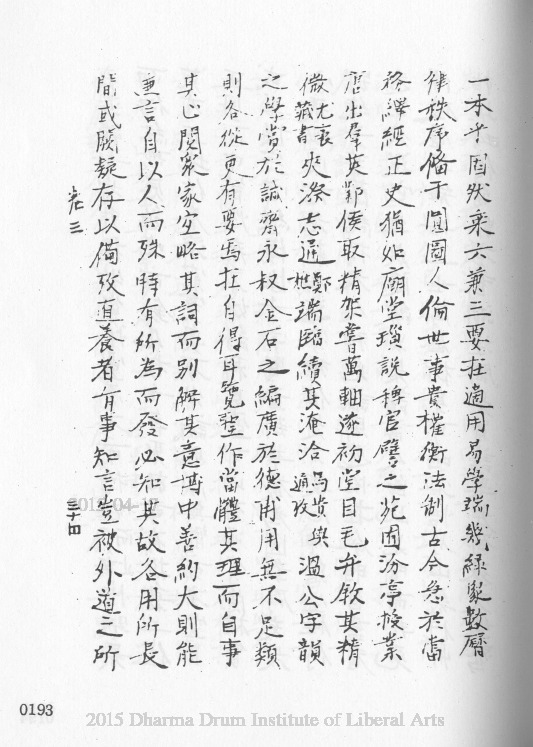 一本千因狀乘六兼三要在適用易學瑞幾緣象數曆
律秩序條干圓圖人倫世事貴權衡法制古今急於當
務繹經正史猶如廟堂瑣說稗官譬之苑囿汾亭授業
唐出羣英鄴侯取精架嘗萬軸遂初堂目毛弁敘其精
微尤袤藏書夾漈志通鄭樵端臨續其淹洽馬貴與通攷溫公字韻
之學嘗於誠齋永叔金石之編廣於德甫用無不足類
則各從更有要焉在自得耳覽聖作當體其理而自事
其心閱衆家宜略其詞而別解其意博中善約大則能
兼言自以人而殊時有所為而發必知其故各用所長
間或闕疑存以備攷直養者有事知言豈被外道之所
卷三
三十四
0193
2015 Dharma Drum Institute of Liberal Arts